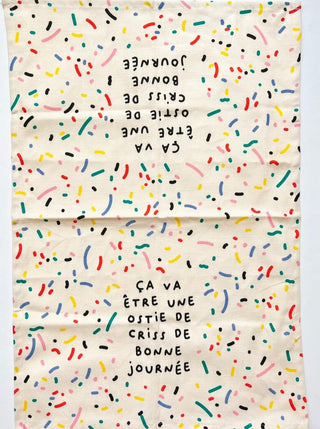 ÇA VA
ÊTRE UNE
OSTIE DE
CRISS DE
BONNE
JOURNÉE
ÇA VA
ÊTRE UNE
OSTIE DE
CRISS DE
BONNE
JOURNÉE